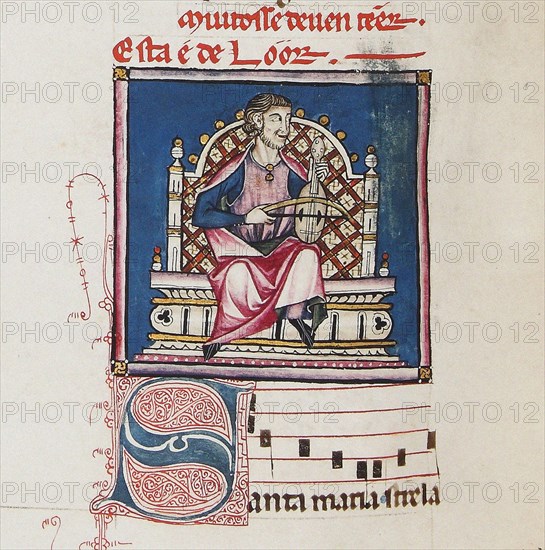 Muitosse deuen tẽer.
Esta é de Lóór.
Santa maria strela
PHOTO 12